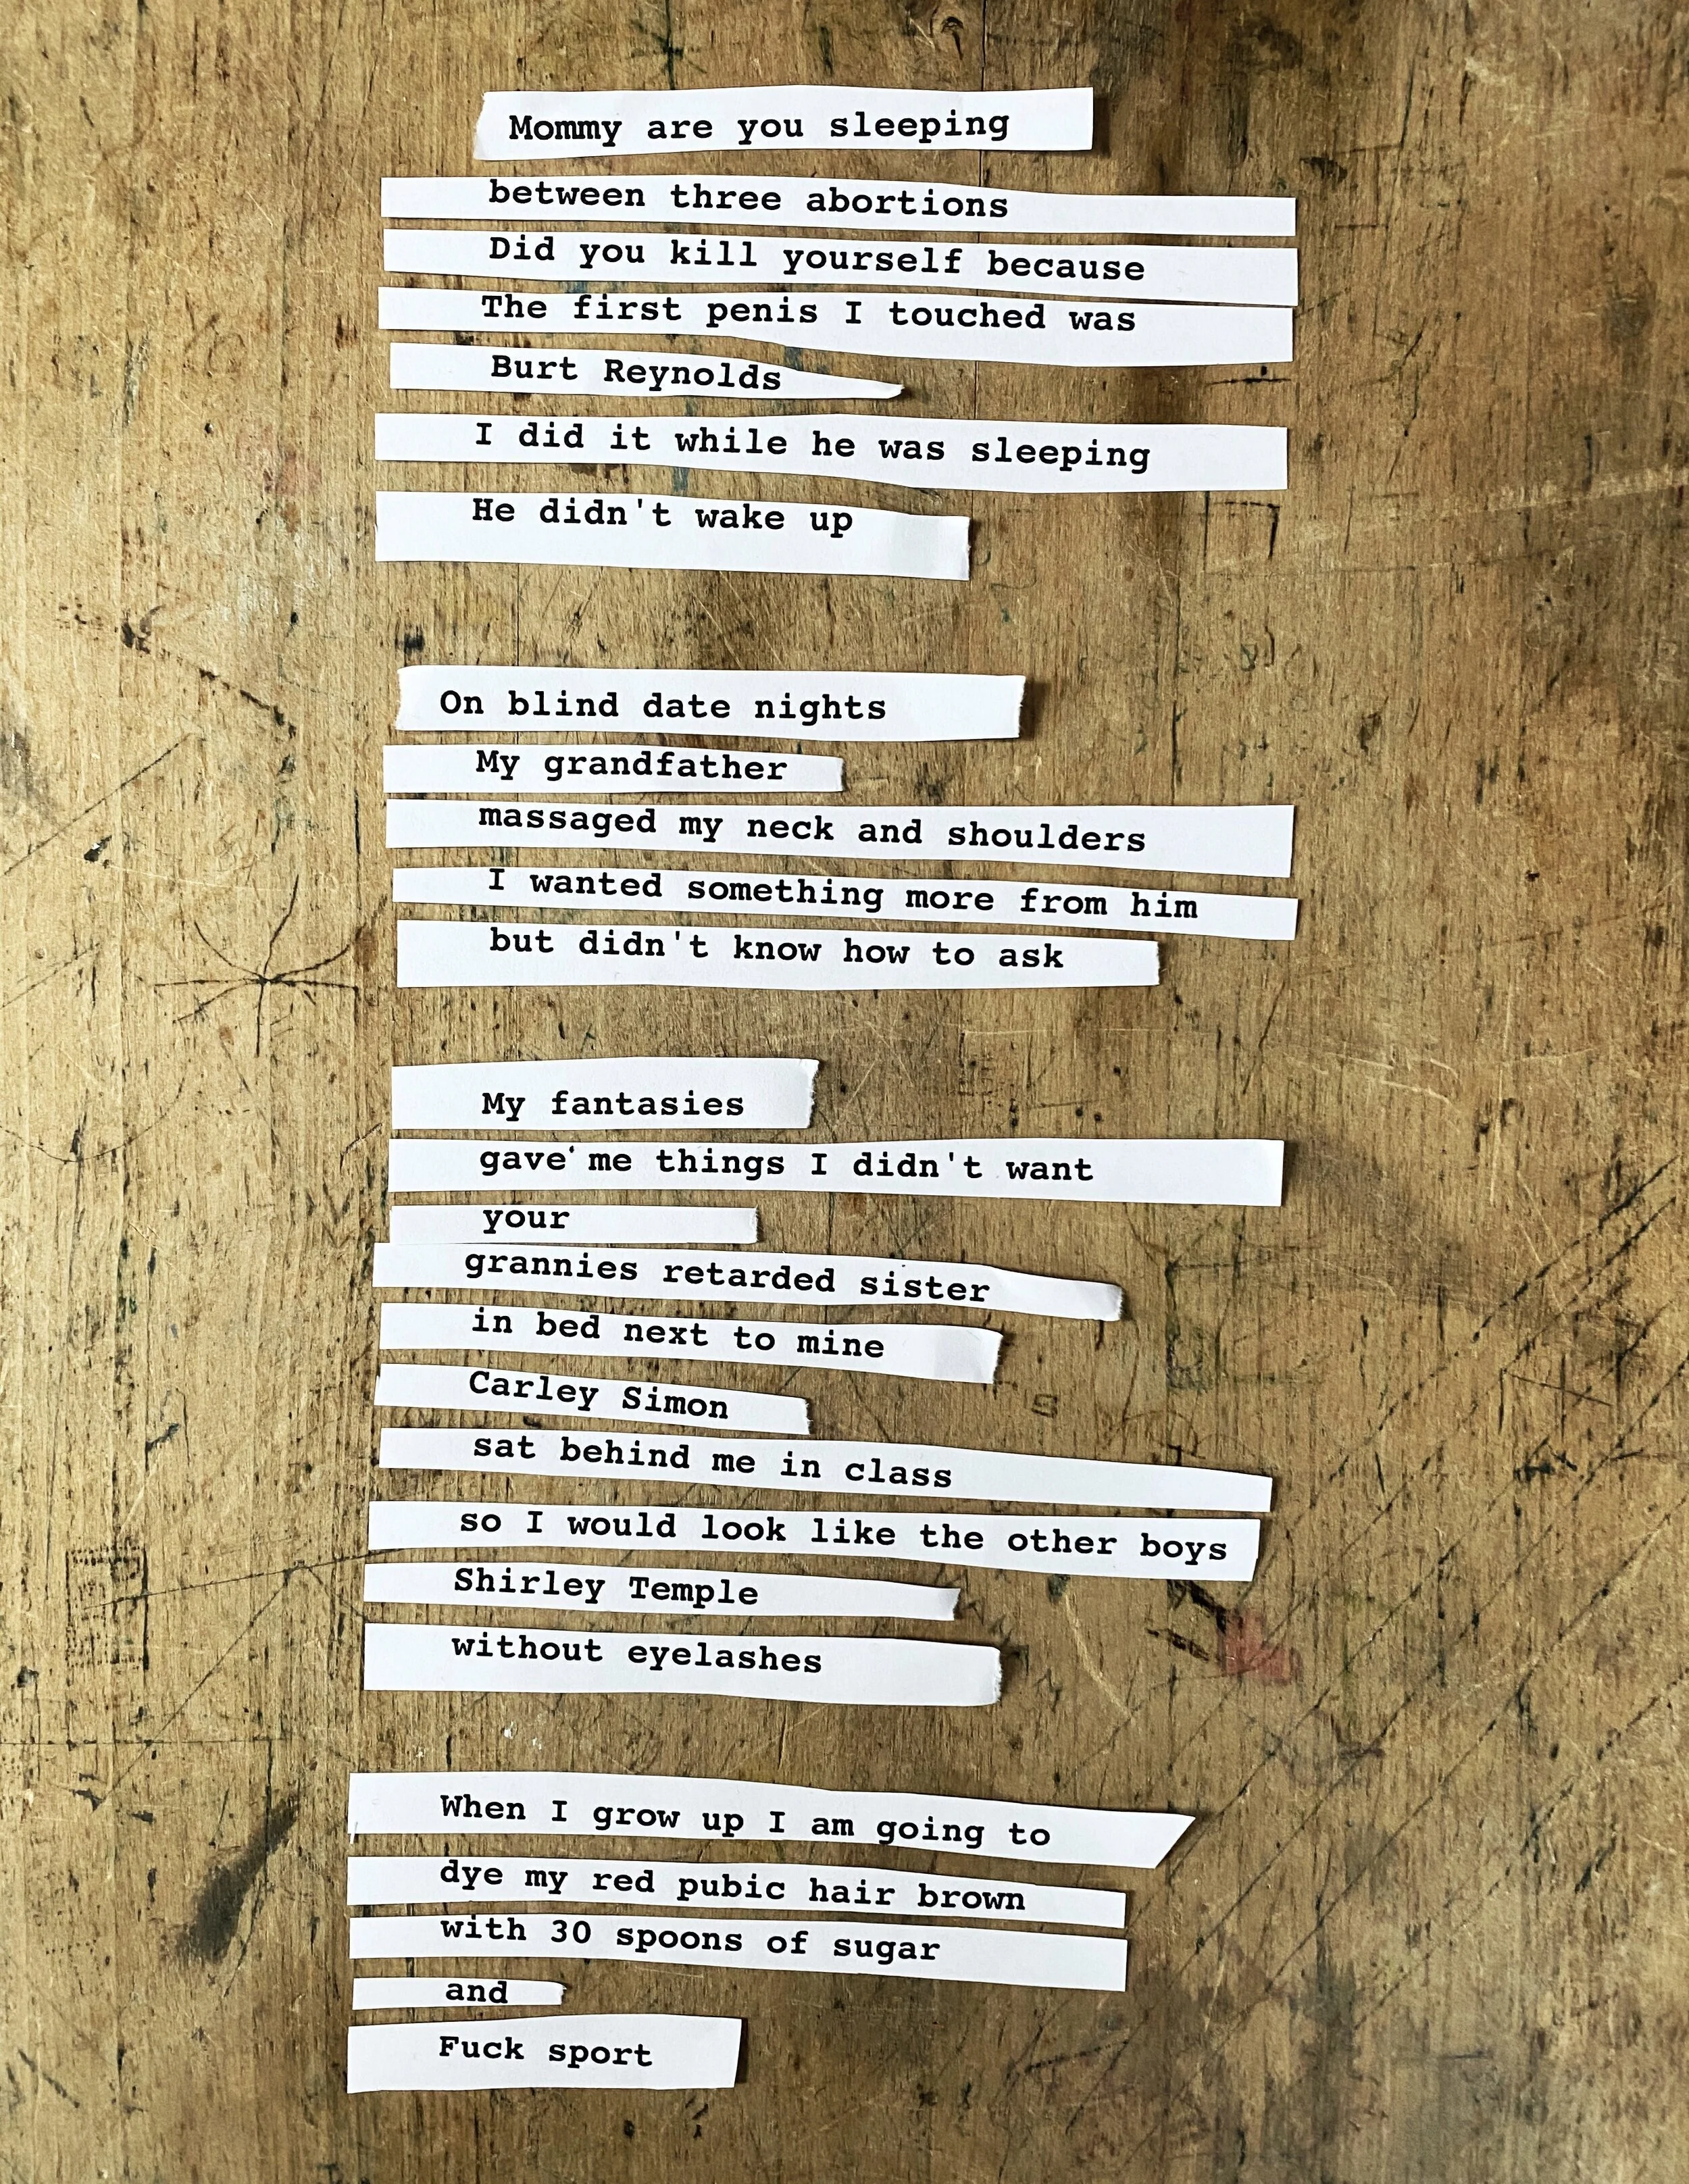 Mommy are you sleeping
between three abortions
Did you kill yourself because
The first penis I touched was
Burt Reynolds
I did it while he was sleeping
He didn't wake up
On blind date nights
My grandfather
massaged my neck and shoulders
I wanted something more from him
but didn't know how to ask
My fantasies
gave' me things I didn't want
your
grannies retarded sister
in bed next to mine
Carley Simon
sat behind me in class
so I would look like the other boys
Shirley Temple
without eyelashes
When I grow up I am going to
dye my red pubic hair brown
with 30 spoons of sugar
and
Fuck sport